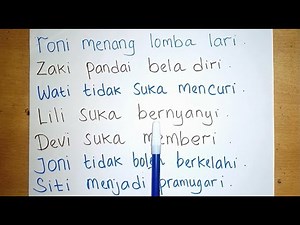 roni menang lomba lari.
Zaki pandai bela diri.
Wati tidak suka mencuri.
Lili suka bernyanyi.
Devi suka memberi.
Joni tidak boleh berkelahi.
Siti menjadi pramugari.